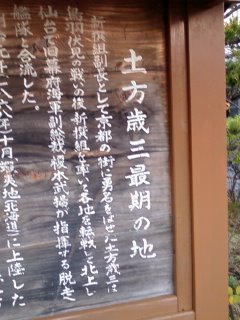 土方歳三最期の地
新撰組副長として京都の街に勇名をはせた土方歳三は
鳥羽伏見の戦いの後新撰組を率いて各地を転戦して北上し
仙台で旧幕府海軍副総裁榎本武揚が指揮する脱走
艦隊と合流した。
八六八年十月蝦夷地(北海道)に上陸した